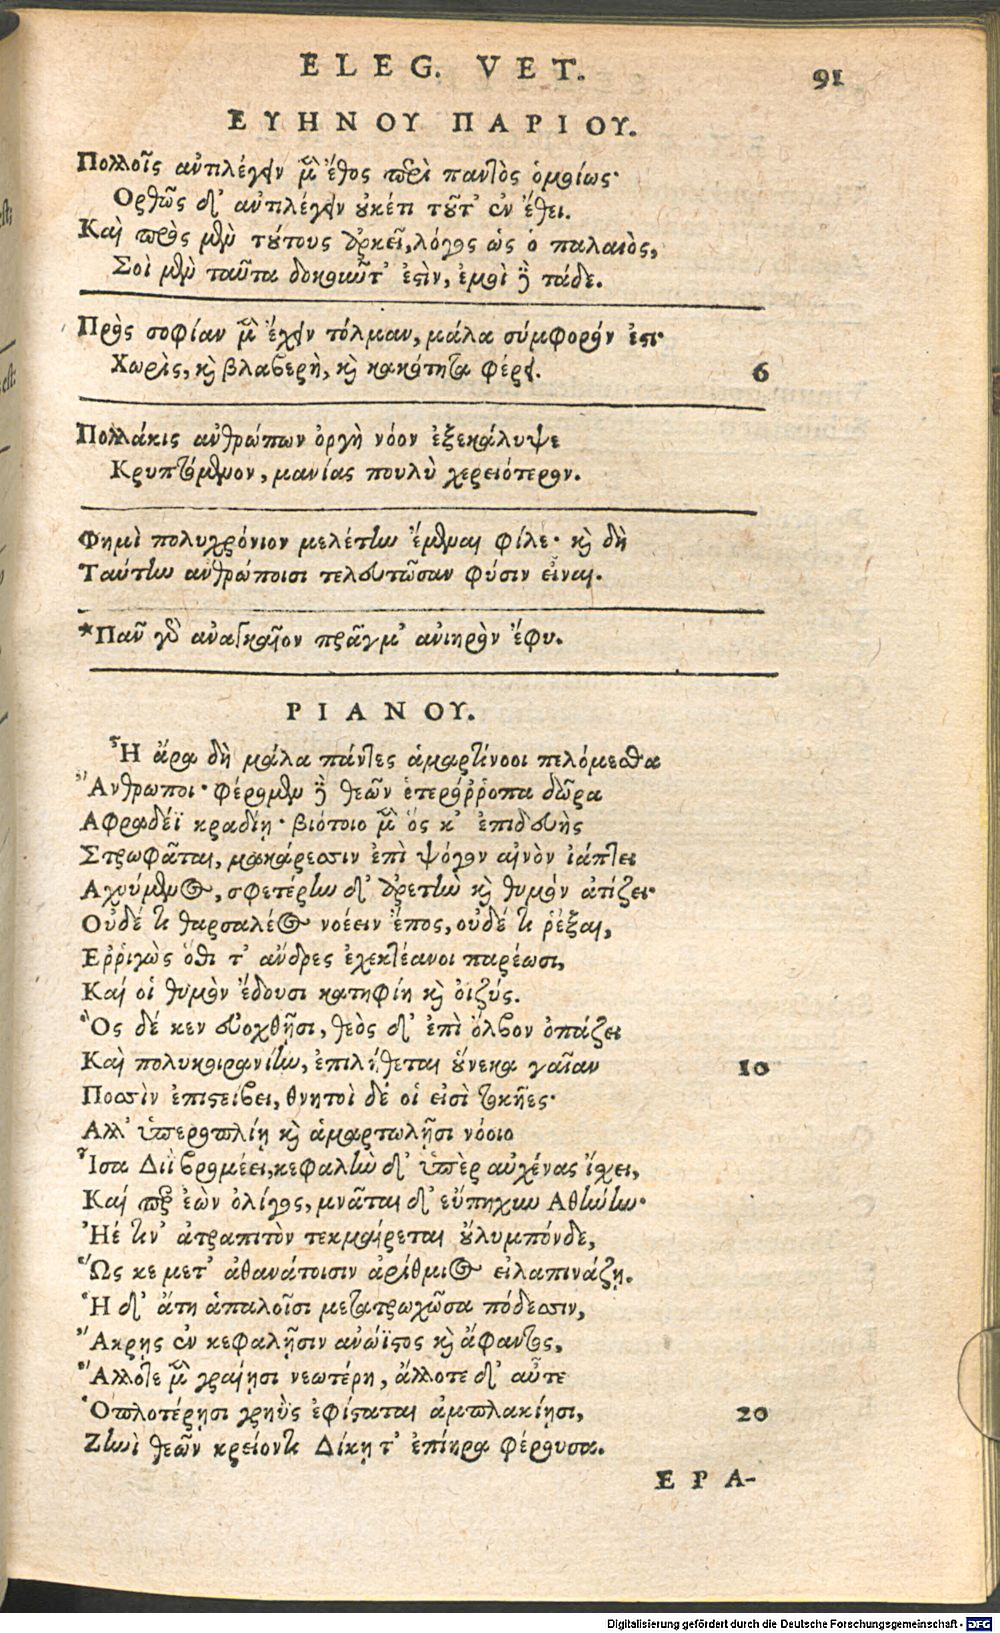 ELEG. VET. 91
ΕΥΗΝΟΥ ΠΑΡΙΟΥ.
Πολλοῖς ἀντιλέγειν μὲν ἔθος περὶ παντὸς ὁμοίως·
Ορθῶς δ' ἀντιλέγειν οὐκέτι τοῦτ' ἐν ἔθει.
Καὶ πρὸς μὲν τούτους ἀρκεῖ, λόγος ὡς ὁ παλαιὸς,
Σοὶ μὲν ταῦτα δοκοῦντ' ἐστὶν, ἐμοὶ δὲ τάδε.
Πρὸς σοφίαν μὲν ἔχειν τόλμαν, μάλα σύμφορόν ἐστι·
Χωρὶς, καὶ βλαβερὴ, καὶ κακότητα φέρει. 6
Πολλάκις ἀνθρώπων ὀργὴ νόον ἐξεκάλυψε
Κρυπτόμενον, μανίας πουλὺ χερειότερον.
Φημὶ πολυχρόνιον μελέτην ἔμμεναι φίλε· καὶ δὴ
Ταύτην ἀνθρώποισι τελευτῶσαν φύσιν εἶναι.
*Πᾶν γὰρ ἀναγκαῖον πρᾶγμ' ἀνιηρὸν ἔφυ.
ΡΙΑΝΟΥ.
Ἦ ἄρα δὴ μάλα πάντες ἁμαρτίνοοι πελόμεσθα
Ἄνθρωποι· φέρομεν δὲ θεῶν ἑτερόῤῥοπα δῶρα
Αφραδέϊ κραδίῃ· βιότοιο μὲν ὅς κ' ἐπιδευὴς
Στρωφᾶται, μακάρεσσιν ἐπὶ ψόγον αἰνὸν ἰάπτει
Αχνύμενος, σφετέρην δ' ἀρετὴν καὶ θυμὸν ἀτίζει·
Οὐδέ τι θαρσαλέος νοέειν ἔπος, οὐδέ τι ῥέξαι,
Εῤῥιγὼς ὅθι τ' ἄνδρες ἐχεκτέανοι παρέωσι,
Καί οἱ θυμὸν ἔδουσι κατηφίη καὶ ὀϊζύς.
Ὃς δέ κεν εὐοχθῇσι, θεὸς δ' ἐπὶ ὄλβον ὀπάζει
Καὶ πολυκοιρανίην, ἐπιλήθεται οὕνεκα γαῖαν 10
Ποσσὶν ἐπιστείβει, θνητοὶ δέ οἱ εἰσὶ τοκῆες·
Αλλ' ὑπεροπλίῃ καὶ ἁμαρτωλῇσι νόοιο
Ἶσα Διῒ βρομέει, κεφαλὴν δ' ὑπὲρ αὐχένας ἴσχει,
Καί περ ἐὼν ὀλίγος, μνᾶται δ' εὔπηχυν Αθήνην·
Ἠέ τιν' ἀτραπιτὸν τεκμαίρεται οὔλυμπόνδε,
Ὥς κε μετ' ἀθανάτοισιν ἀρίθμιος εἰλαπινάζῃ.
Ἡ δ' ἄτη ἁπαλοῖσι μετατρωχῶσα πόδεσσιν,
Ἄκρῃς ἐν κεφαλῇσιν ἀνώϊστος καὶ ἄφαντος,
Ἄλλοτε μὲν γραίῃσι νεωτέρη, ἄλλοτε δ' αὖτε
Ὁπλοτέρῃσι γρηῢς ἐφίσταται ἀμπλακίῃσι, 20
Ζηνὶ θεῶν κρείοντι Δίκῃ τ' ἐπίηρα φέρουσα.
ΕΡΑ-
Digitalisierung gefördert durch die Deutsche Forschungsgemeinschaft - DFG